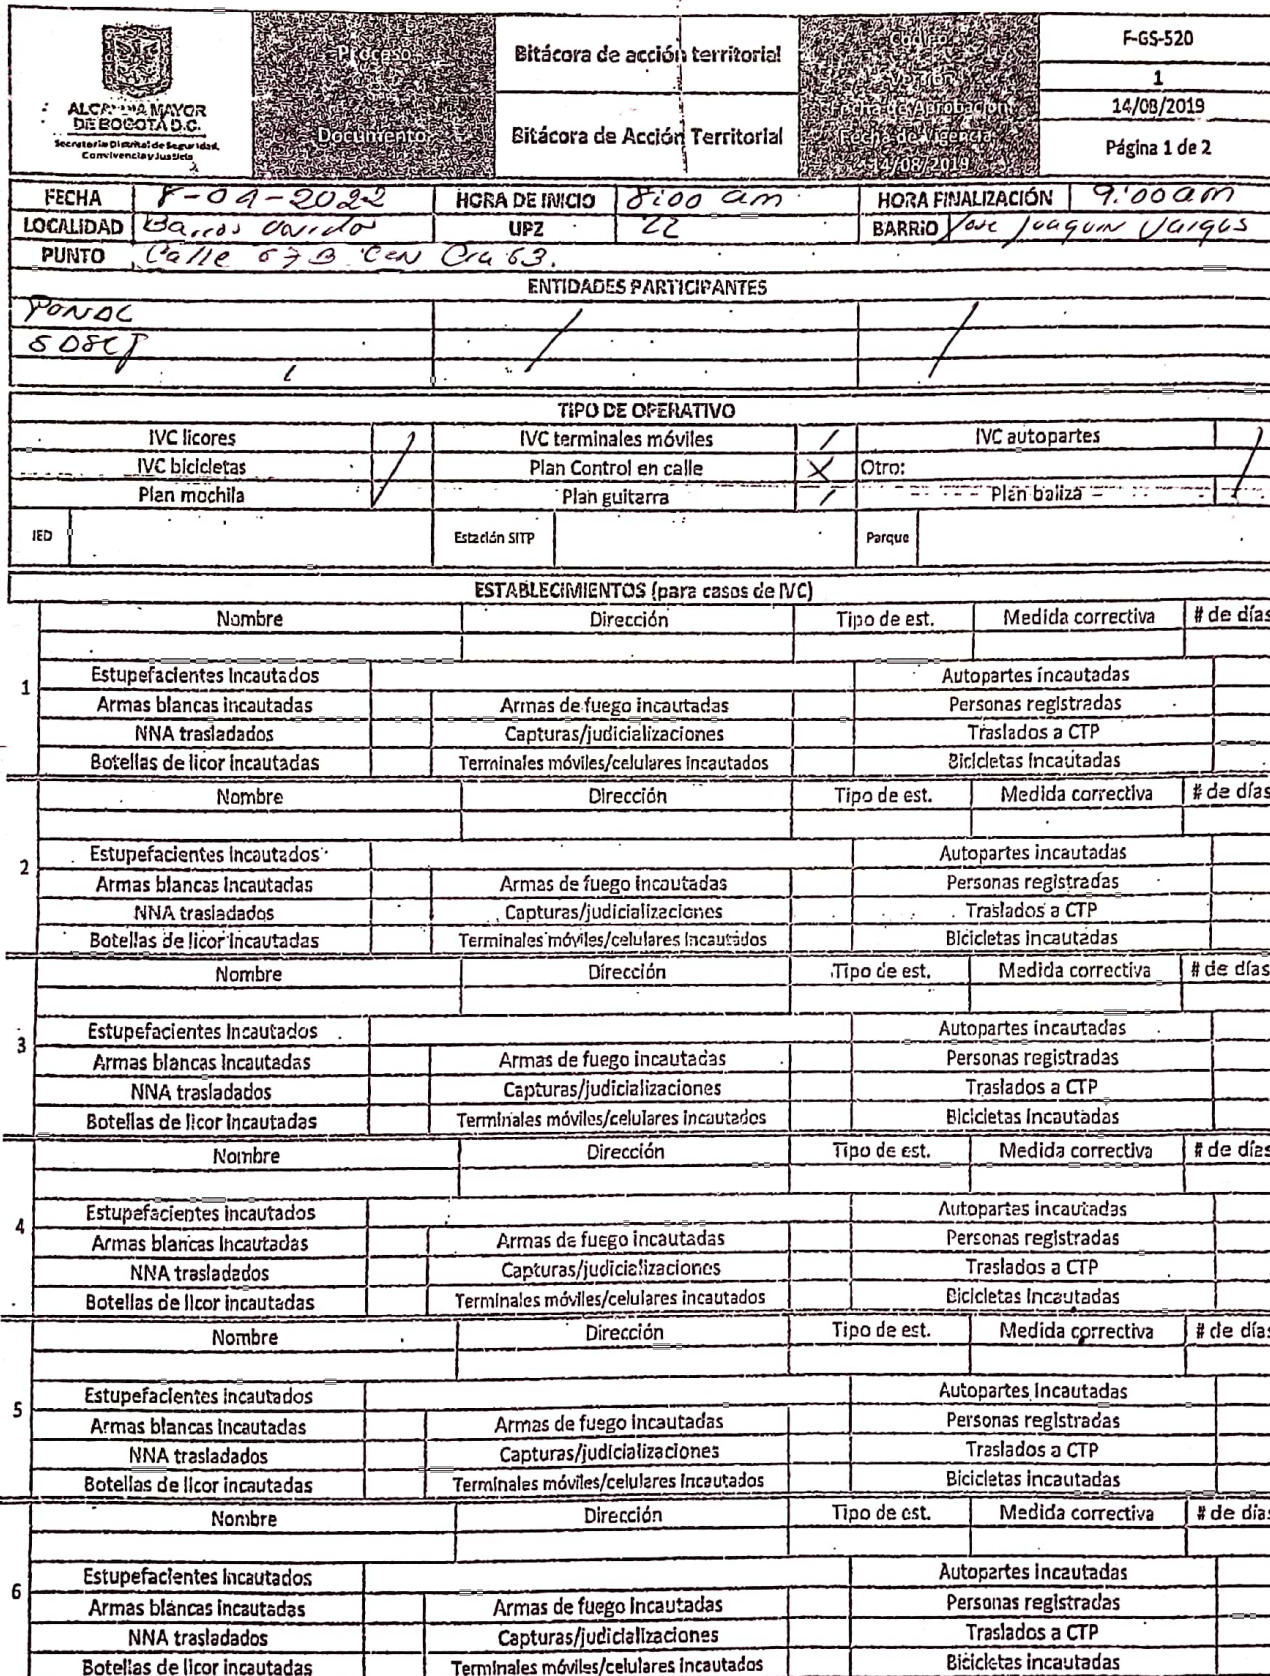 ALCALDIA MAYOR
DE BOGOTÁ D.C.
Secretaría Distrital de Seguridad,
Convivencia y Justicia
Proceso
Bitácora de acción territorial
Código
F-GS-520
Versión
1
Documento
Bitácora de Acción Territorial
Fecha de Aprobación
14/08/2019
Fecha de Vigencia
14/08/2019
Página 1 de 2
FECHA 8-01-2022 HORA DE INICIO 8:00 am HORA FINALIZACIÓN 9:00 am
LOCALIDAD Barrios Unidos UPZ 22 BARRIO Jose Joaquin Vargas
PUNTO Calle 67B Con Cra 63.
ENTIDADES PARTICIPANTES
PONAL
SDSCJ
TIPO DE OPERATIVO
IVC licores IVC terminales móviles / IVC autopartes
IVC bicicletas Plan Control en calle X Otro:
Plan mochila Plan guitarra / Plan baliza
IED Estación SITP Parque
ESTABLECIMIENTOS (para casos de IVC)
Nombre Dirección Tipo de est. Medida correctiva # de días
1
Estupefacientes Incautados Autopartes incautadas
Armas blancas incautadas Armas de fuego incautadas Personas registradas
NNA trasladados Capturas/judicializaciones Traslados a CTP
Botellas de licor incautadas Terminales móviles/celulares incautados Bicicletas incautadas
Nombre Dirección Tipo de est. Medida correctiva # de días
2
Estupefacientes Incautados Autopartes incautadas
Armas blancas incautadas Armas de fuego incautadas Personas registradas
NNA trasladados Capturas/judicializaciones Traslados a CTP
Botellas de licor incautadas Terminales móviles/celulares incautados Bicicletas incautadas
Nombre Dirección Tipo de est. Medida correctiva # de días
3
Estupefacientes Incautados Autopartes incautadas
Armas blancas incautadas Armas de fuego incautadas Personas registradas
NNA trasladados Capturas/judicializaciones Traslados a CTP
Botellas de licor incautadas Terminales móviles/celulares incautados Bicicletas incautadas
Nombre Dirección Tipo de est. Medida correctiva # de días
4
Estupefacientes incautados Autopartes incautadas
Armas blancas incautadas Armas de fuego incautadas Personas registradas
NNA trasladados Capturas/judicializaciones Traslados a CTP
Botellas de licor incautadas Terminales móviles/celulares incautados Bicicletas incautadas
Nombre Dirección Tipo de est. Medida correctiva # de días
5
Estupefacientes incautados Autopartes incautadas
Armas blancas incautadas Armas de fuego incautadas Personas registradas
NNA trasladados Capturas/judicializaciones Traslados a CTP
Botellas de licor incautadas Terminales móviles/celulares incautados Bicicletas incautadas
Nombre Dirección Tipo de est. Medida correctiva # de días
6
Estupefacientes incautados Autopartes incautadas
Armas blancas incautadas Armas de fuego incautadas Personas registradas
NNA trasladados Capturas/judicializaciones Traslados a CTP
Botellas de licor incautadas Terminales móviles/celulares incautados Bicicletas incautadas